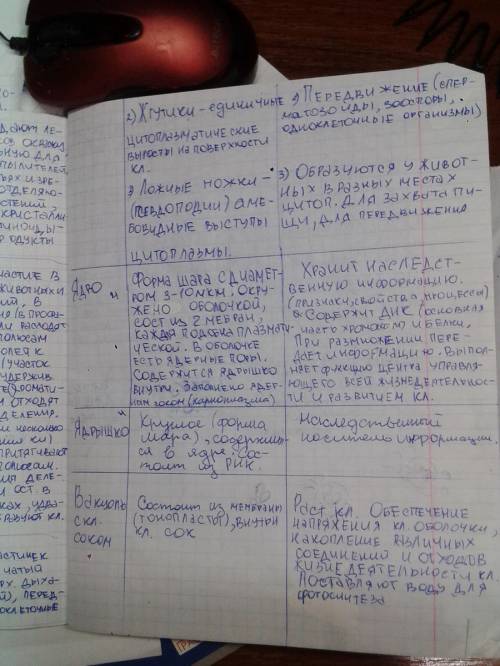 2) Жгутики - единичные
цитоплазматические
выросты на поверхности
кл.
3) Ложные ножки -
(псевдоподии) аме-
бовидные выступы
цитоплазмы.
2) Передвижение (спер-
матозоиды, зооспоры,
одноклеточные организмы)
3) Образуются у живот-
ных в разных местах
цитоп. для захвата пи-
щи, для передвижения
Ядро
Форма шара с диамет-
ром 3-10 мкм, окру-
жено оболочкой,
сост из 2 мебран,
каждая подобна плазмати-
ческой. В оболочке
есть ядерные поры.
Содержится ядрышко
внутри. Заполнено ядер-
ным соком (кариоплазма)
Хранит наследст-
венную информацию.
(признаки, свойства, процессы)
Содержит ДНК (основная
часть хромосом) и белки.
При размножении пере-
дает информацию. Выпол-
няет функцию центра управля-
ющего всей жизнедеятельнос-
ти и развитием кл.
Ядрышко
Круглое (форма
шара), содержит-
ся в ядре, сос-
тоит из РНК.
Наследственный
носитель информации.
Вакуоль
с кл.
соком
Состоит из мембраны
(тонопласты), внутри
кл. сок
Раст. кл. Обеспечение
напряжения кл. оболочки,
накопление различных
соединений и отходов
жизнедеятельности кл.
Поставляют воду для
фотосинтеза